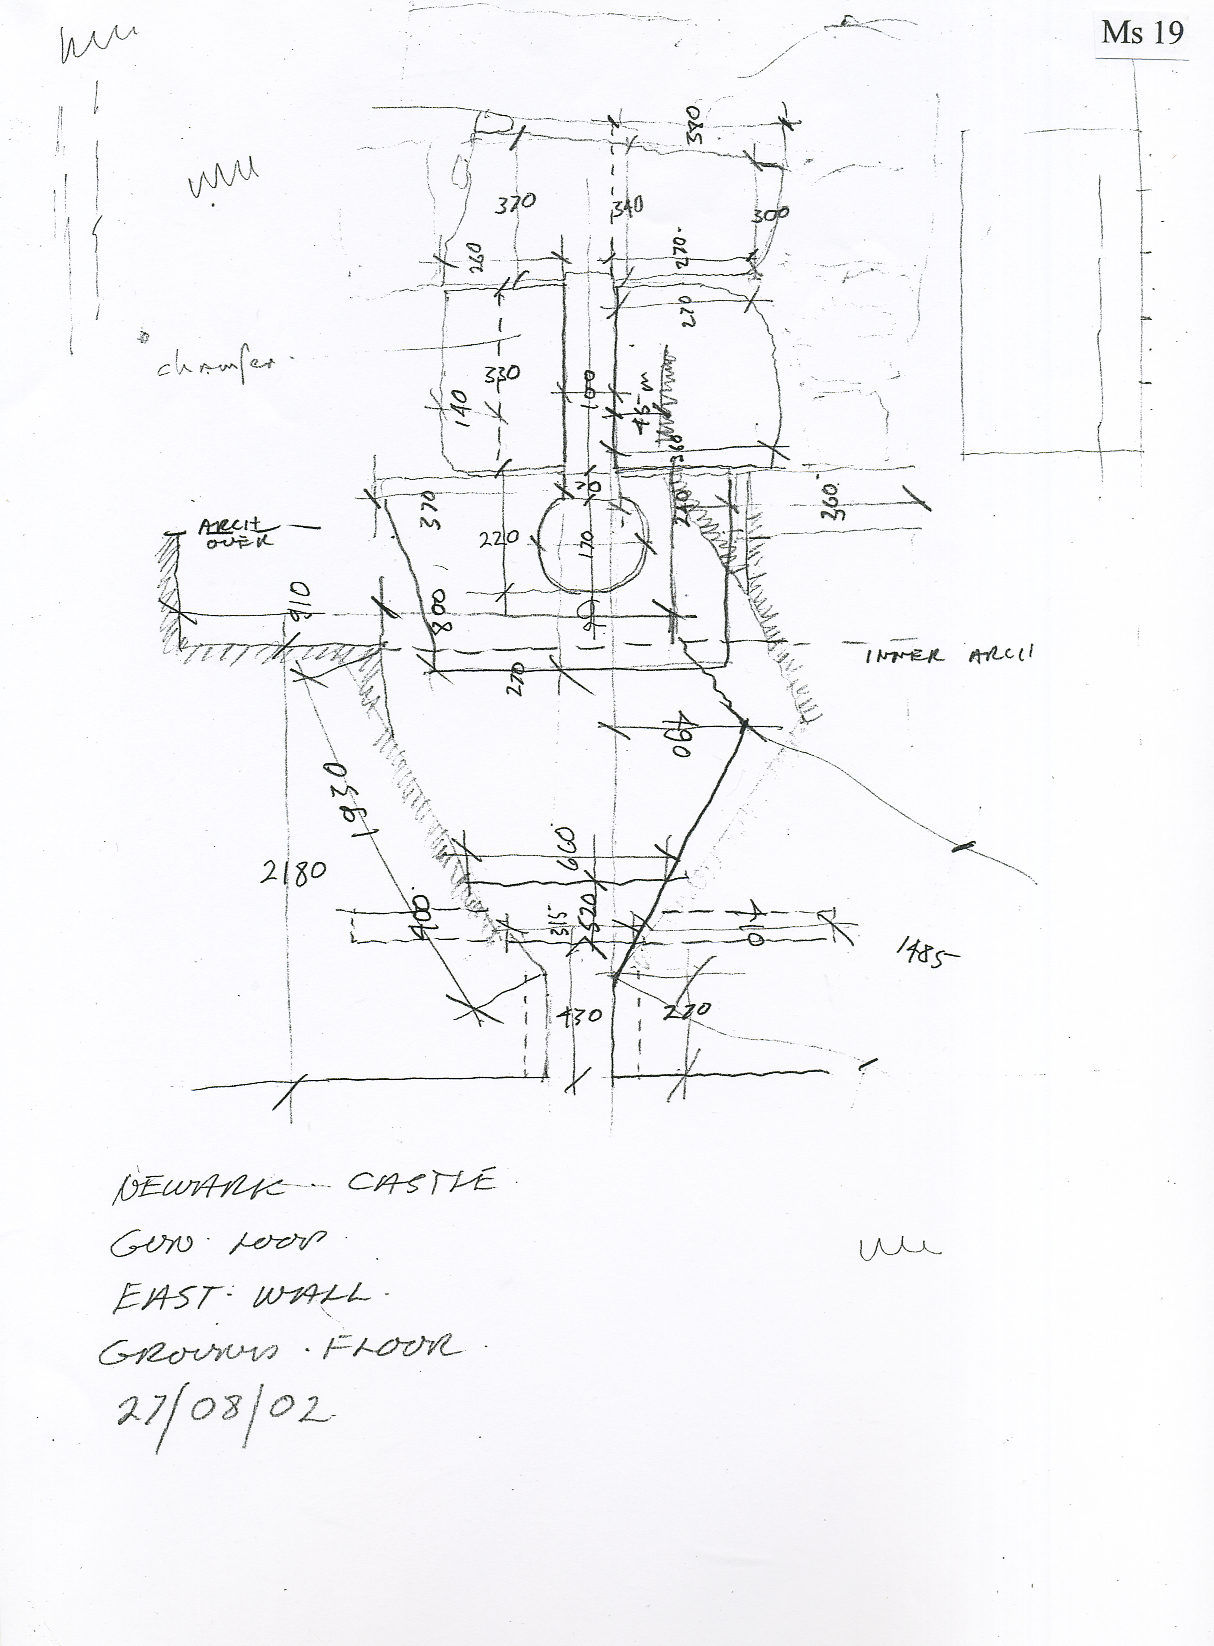 Ms 19
380
370
340
300
260
270
270
chamfer
330
140
100
45
360
370
70
240
360
220
170
ARCH
OVER
910
800
INNER ARCH
270
490
1930
660
2180
400
315
520
410
1485
430
270
NEWARK CASTLE
GUN LOOP
EAST WALL
GROUND FLOOR
27/08/02